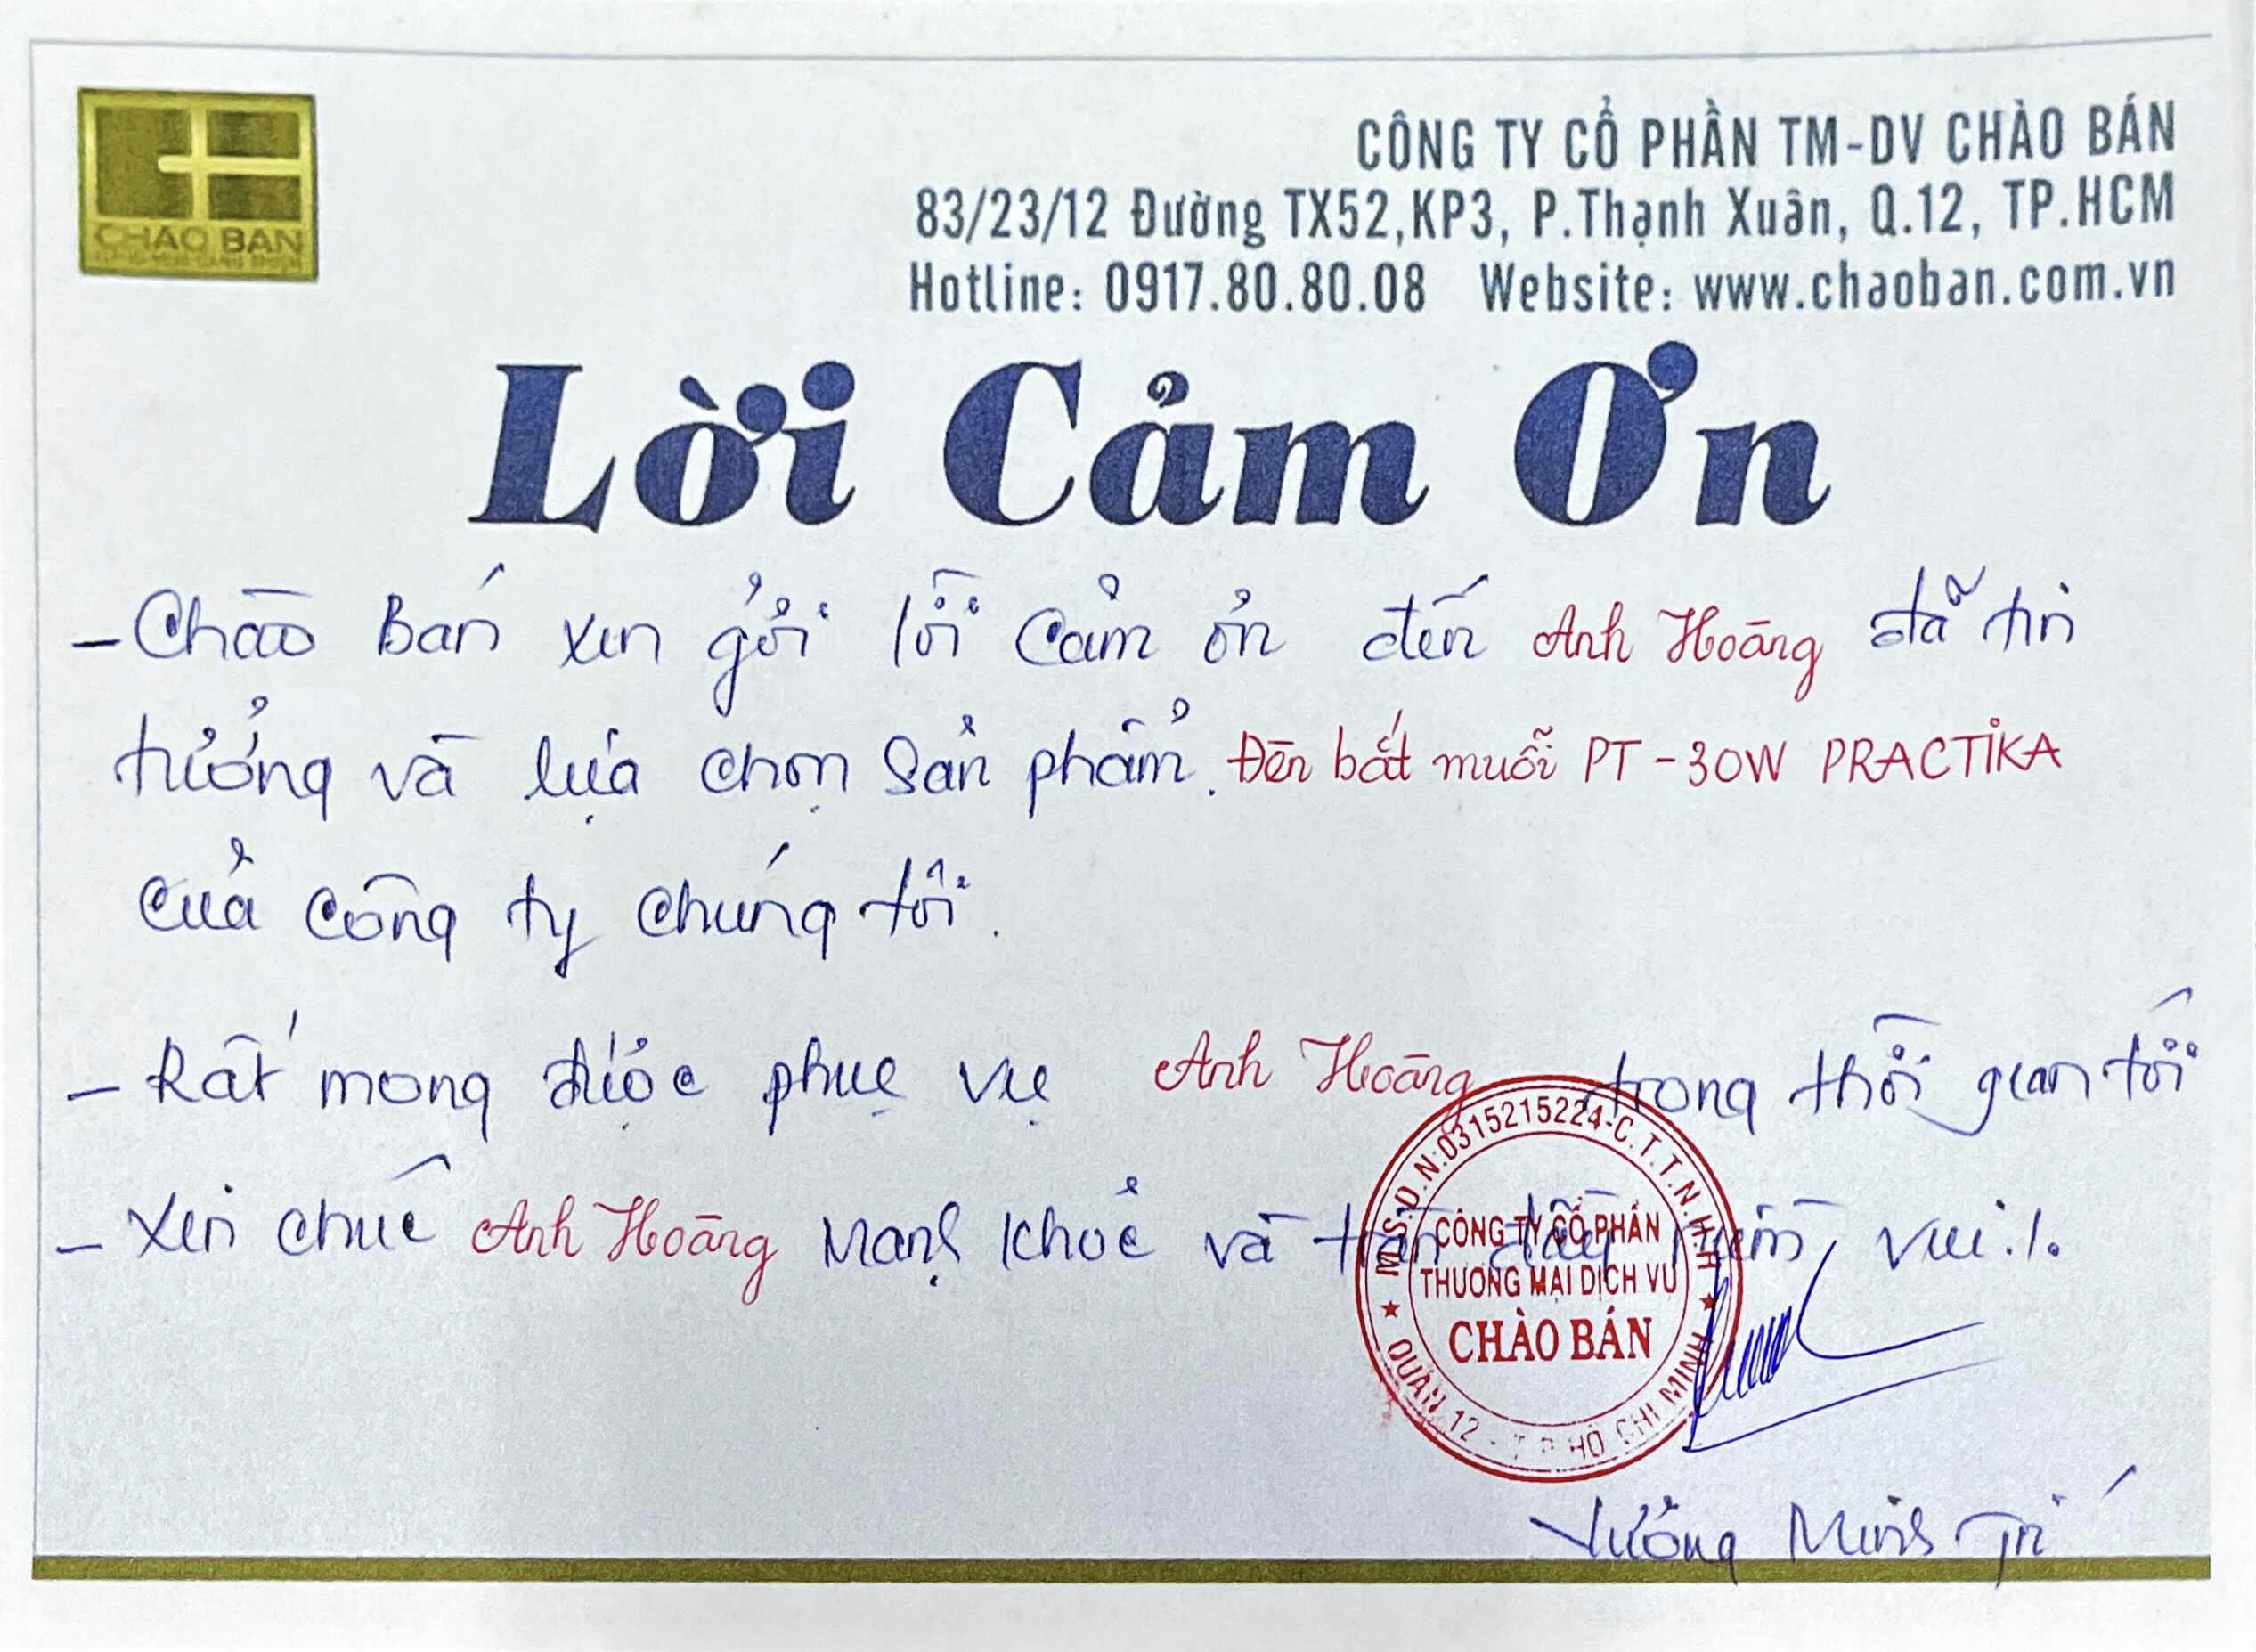 CHAO BAN
CÔNG TY CỔ PHẦN TM-DV CHÀO BÁN
83/23/12 Đường TX52,KP3, P.Thạnh Xuân, Q.12, TP.HCM
Hotline: 0917.80.80.08 Website: www.chaoban.com.vn
Lời Cảm Ơn
- Chào Bán xin gởi lời cảm ơn đến Anh Hoàng đã tin
tưởng và lựa chọn sản phẩm. Đèn bắt muỗi PT-30W PRACTIKA
của công ty chúng tôi.
- Rất mong được phục vụ Anh Hoàng trong thời gian tới
- Xin chúc Anh Hoàng mạnh khoẻ và tràn đầy niềm vui.!.
M.S.D.N:0315215224-C.T.T.N.H.H
CÔNG TY CỔ PHẦN
THƯƠNG MẠI DỊCH VỤ
CHÀO BÁN
QUẬN 12 - T.P HỒ CHÍ MINH
Vương Minh Trí